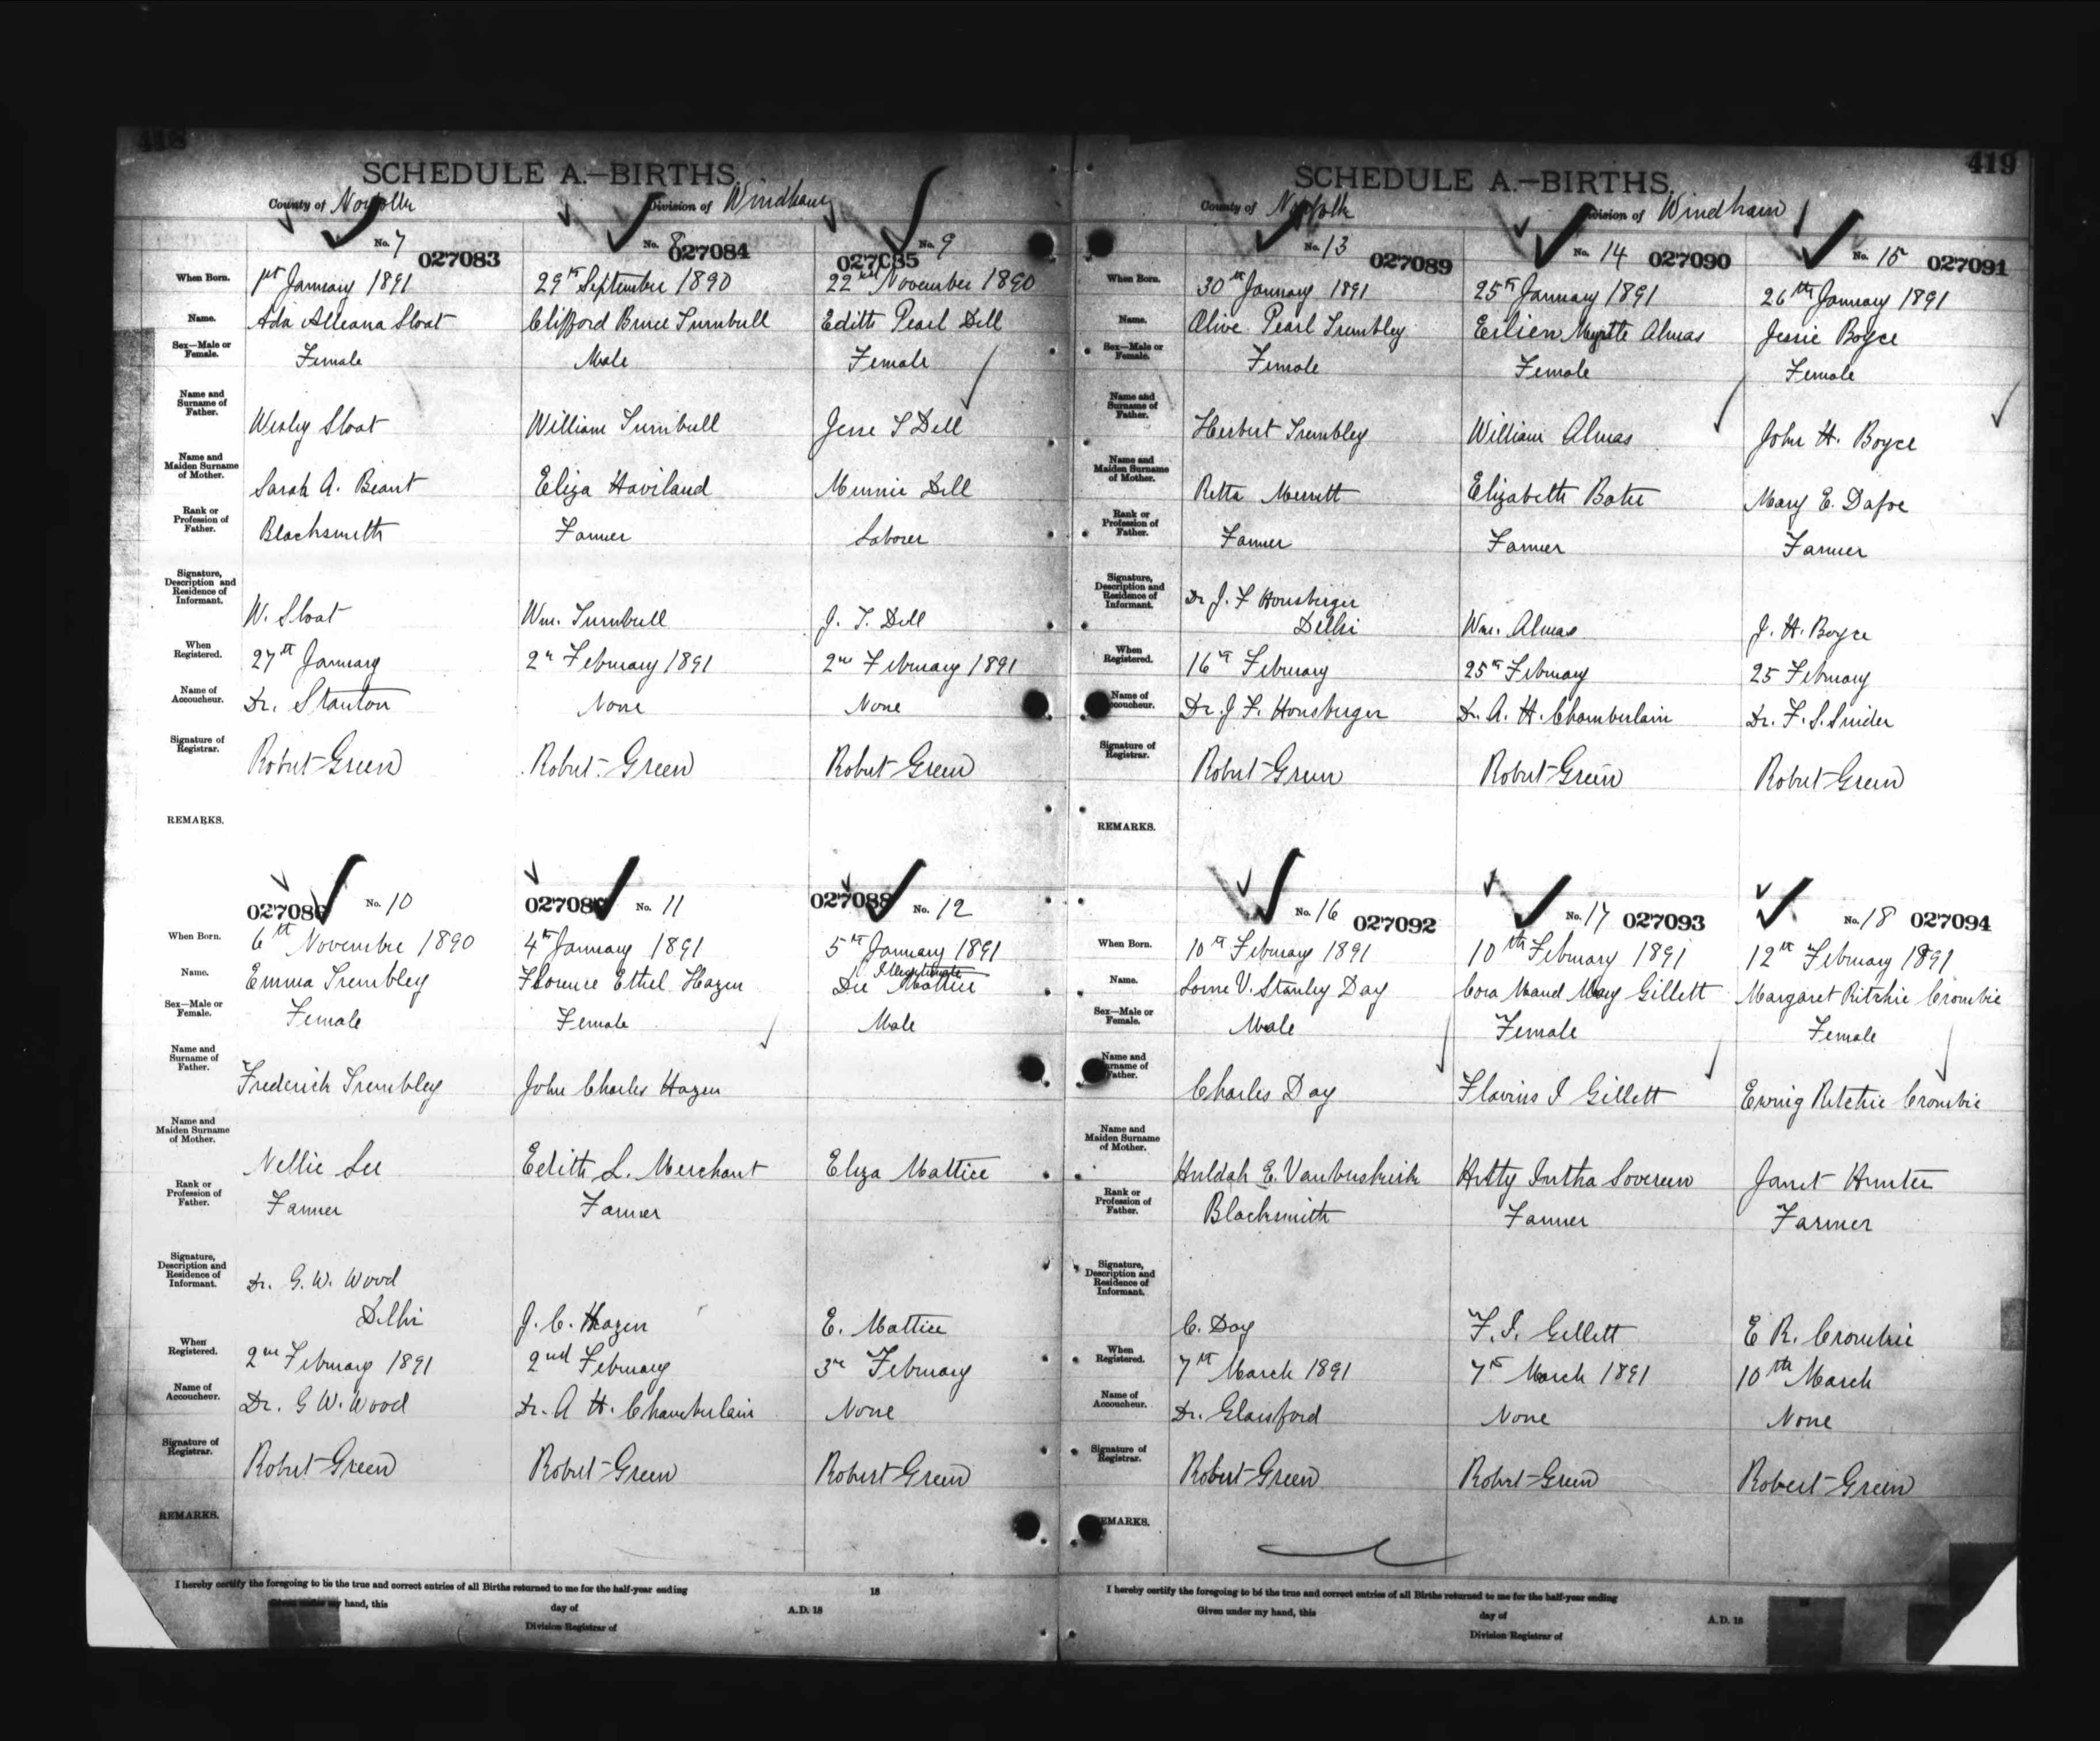 418
SCHEDULE A.—BIRTHS.
County of Norfolk Division of Windham
No. 7 027083 No. 8 027084 027085 No. 9
When Born. 1st January 1891 29th September 1890 22nd November 1890
Name. Ada Alleana Sloat Clifford Bruce Turnbull Edith Pearl Dell
Sex—Male or Female. Female Male Female
Name and Surname of Father. Wesley Sloat William Turnbull Jesse T Dell
Name and Maiden Surname of Mother. Sarah A. Beant Eliza Haviland Minnie Dell
Rank or Profession of Father. Blacksmith Farmer Laborer
Signature, Description and Residence of Informant. W. Sloat Wm. Turnbull J. T. Dell
When Registered. 27th January 2n February 1891 2nd February 1891
Name of Accoucheur. Dr. Stanton None None
Signature of Registrar. Robert Green Robert Green Robert Green
REMARKS.
027086 No. 10 02708 No. 11 027088 No. 12
When Born. 6th November 1890 4th January 1891 5th January 1891
Name. Emma Trembley Florence Ethel Hazen Illegitimate Mattice
Sex—Male or Female. Female Female Male
Name and Surname of Father. Frederick Trembley John Charles Hazen
Name and Maiden Surname of Mother. Nellie Lee Edith L. Merchant Eliza Mattice
Rank or Profession of Father. Farmer Farmer
Signature, Description and Residence of Informant. Dr. G. W. Wood
Delhi J. C. Hazen E. Mattice
When Registered. 2nd February 1891 2nd February 3r February
Name of Accoucheur. Dr. G W. Wood Dr. A H. Chamberlain None
Signature of Registrar. Robert Green Robert Green Robert Green
REMARKS.
I hereby certify the foregoing to be the true and correct entries of all Births returned to me for the half-year ending 18
Given under my hand, this day of A.D. 18
Division Registrar of
419
SCHEDULE A.—BIRTHS.
County of Norfolk Division of Windham
No. 13 027089 No. 14 027090 No. 15 027091
When Born. 30th January 1891 25th January 1891 26th January 1891
Name. Olive Pearl Trembley Eilien Myrtle Almas Jessie Boyce
Sex—Male or Female. Female Female Female
Name and Surname of Father. Herbert Trembley William Almas John H. Boyce
Name and Maiden Surname of Mother. Retta Merritt Elizabeth Bater Mary E. Dafoe
Rank or Profession of Father. Farmer Farmer Farmer
Signature, Description and Residence of Informant. Dr J. F Honsberger
Delhi Wm. Almas J. H. Boyce
When Registered. 16th February 25th February 25 February
Name of Accoucheur. Dr. J F. Honsberger Dr. A. H. Chamberlain Dr. F. S. Snider
Signature of Registrar. Robert Green Robert Green Robert Green
REMARKS.
No. 16 027092 No. 17 027093 No. 18 027094
When Born. 10th February 1891 10th February 1891 12th February 1891
Name. Lorne V. Stanley Day Cora Maud May Gillett Margaret Ritchie Crombie
Sex—Male or Female. Male Female Female
Name and Surname of Father. Charles Day Flavius I Gillett Ewing Ritchie Crombie
Name and Maiden Surname of Mother. Huldah E. Vanbuskirk Hetty Intha Sovereen Janet Hunter
Rank or Profession of Father. Blacksmith Farmer Farmer
Signature, Description and Residence of Informant. C. Day F. I. Gillett E R. Crombie
When Registered. 7th March 1891 7th March 1891 10th March
Name of Accoucheur. Dr. Glassford None None
Signature of Registrar. Robert Green Robert Green Robert Green
REMARKS.
I hereby certify the foregoing to be the true and correct entries of all Births returned to me for the half-year ending
Given under my hand, this day of A.D. 18
Division Registrar of